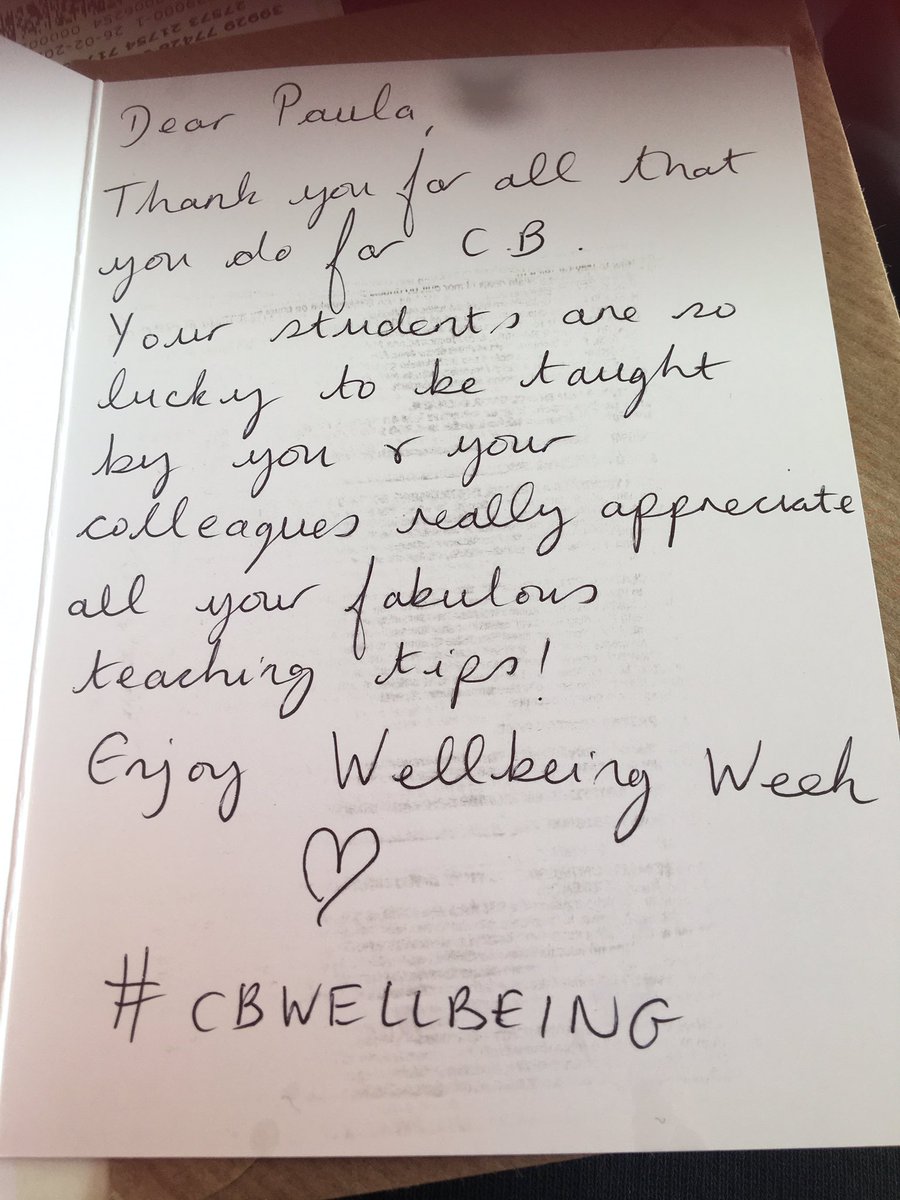 Dear Paula,
Thank you for all that
you do for C.B.
Your students are so
lucky to be taught
by you & your
colleagues really appreciate
all your fabulous
teaching tips!
Enjoy Wellbeing Week
#CBWELLBEING